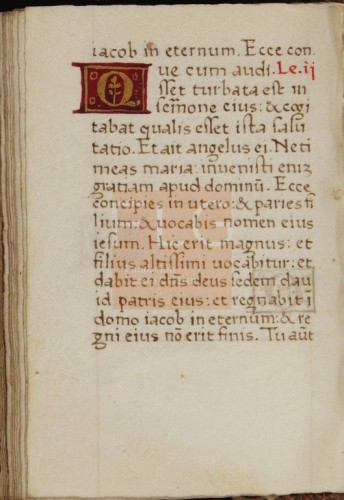 iacob in eternum. Ecce con
ue cum audi. Le. ij
Q sset turbata est in
sermone eius: & cogi
tabat qualis esset ista salu
tatio. Et ait angelus ei. Neti
meas maria: inuenisti eniz
gratiam apud dominū. Ecce
concipies in utero: & paries fi
lium: & uocabis nomen eius
iesum. Hic erit magnus: et
filius altissimi uocabitur: et
dabit ei dn̄s deus sedem dau
id patris eius: et regnabit i
domo iacob in eternum: & re
gni eius nō erit finis. Tu aūt